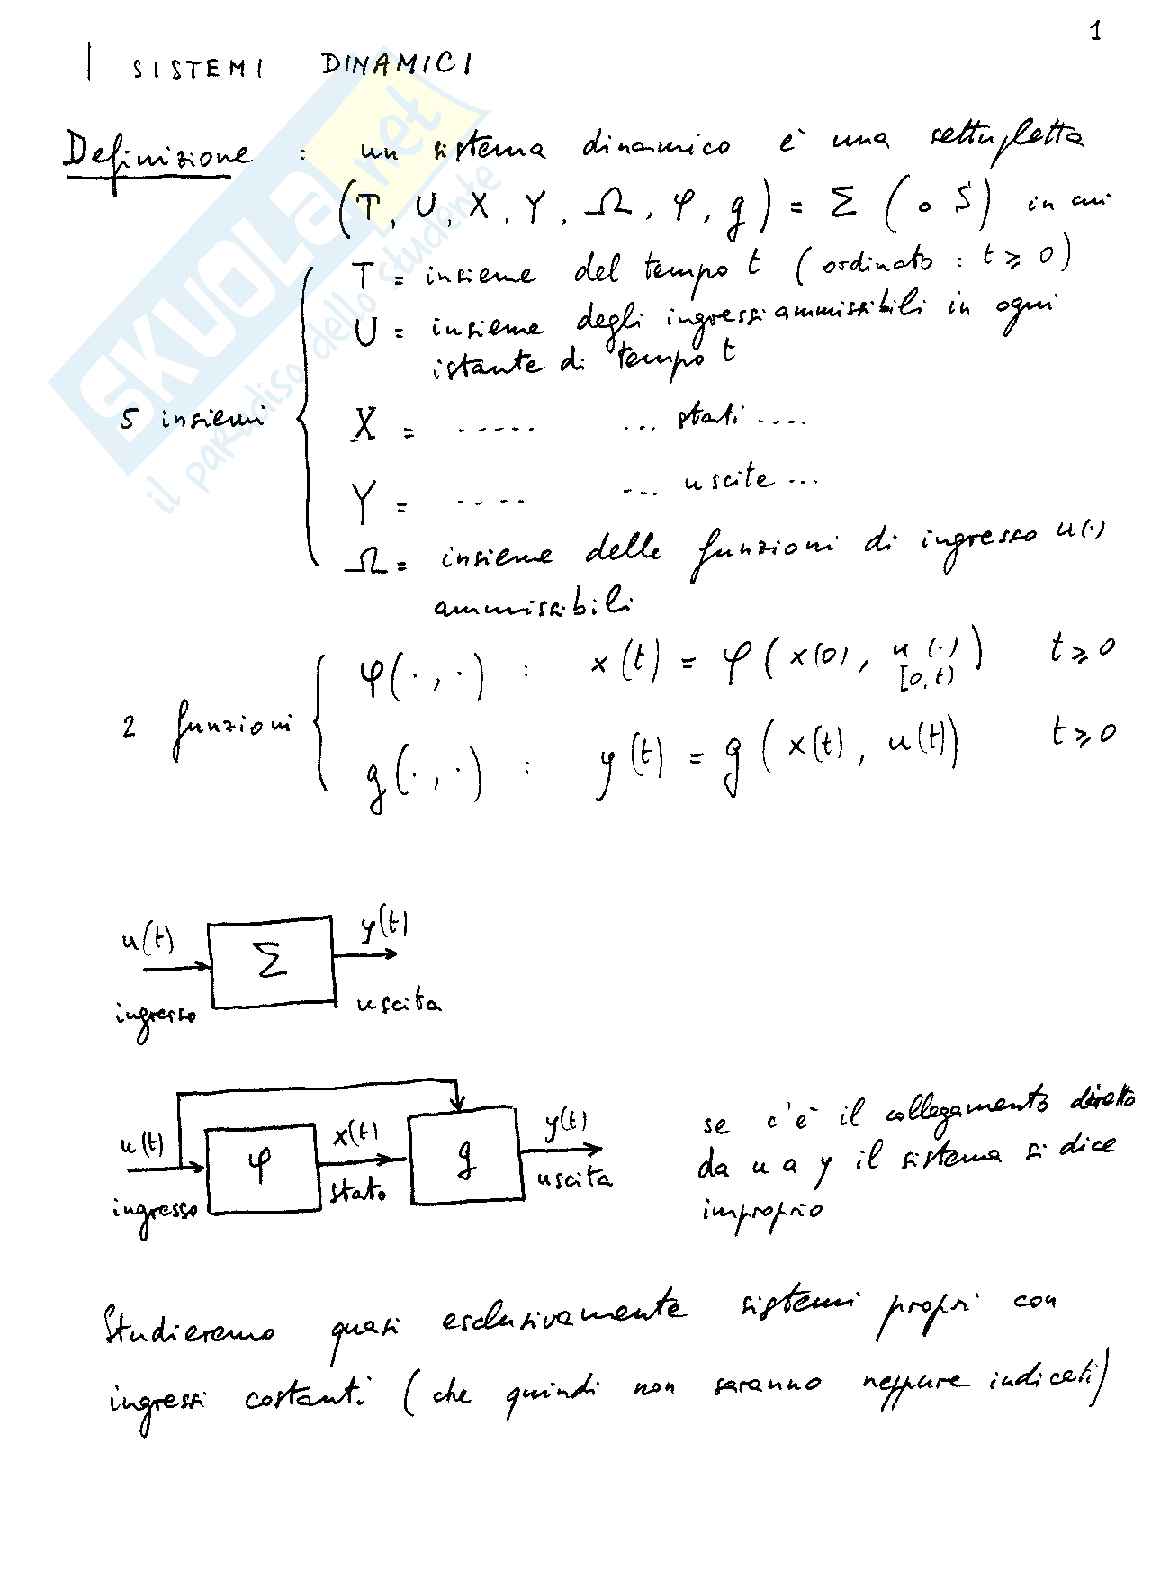 1
I SISTEMI DINAMICI
Definizione : un sistema dinamico è una settupletta
(T, U, X, Y, Ω, φ, g) = Σ (o S) in cui
T = insieme del tempo t (ordinato : t ≥ 0)
U = insieme degli ingressi ammissibili in ogni
istante di tempo t
5 insiemi
X = ..... ... stati ....
Y = .... ... uscite ...
Ω = insieme delle funzioni di ingresso u(·)
ammissibili
φ(·,·) : x(t) = φ(x(0), u[0,t)(·)) t ≥ 0
2 funzioni
g(·,·) : y(t) = g(x(t), u(t)) t ≥ 0
u(t) Σ y(t)
ingresso uscita
u(t) φ x(t) g y(t)
ingresso stato uscita
se c'è il collegamento diretto
da u a y il sistema si dice
improprio
Studieremo quasi esclusivamente sistemi propri con
ingressi costanti (che quindi non saranno neppure indicati)
SKUOLA.net
il paradiso dello studente